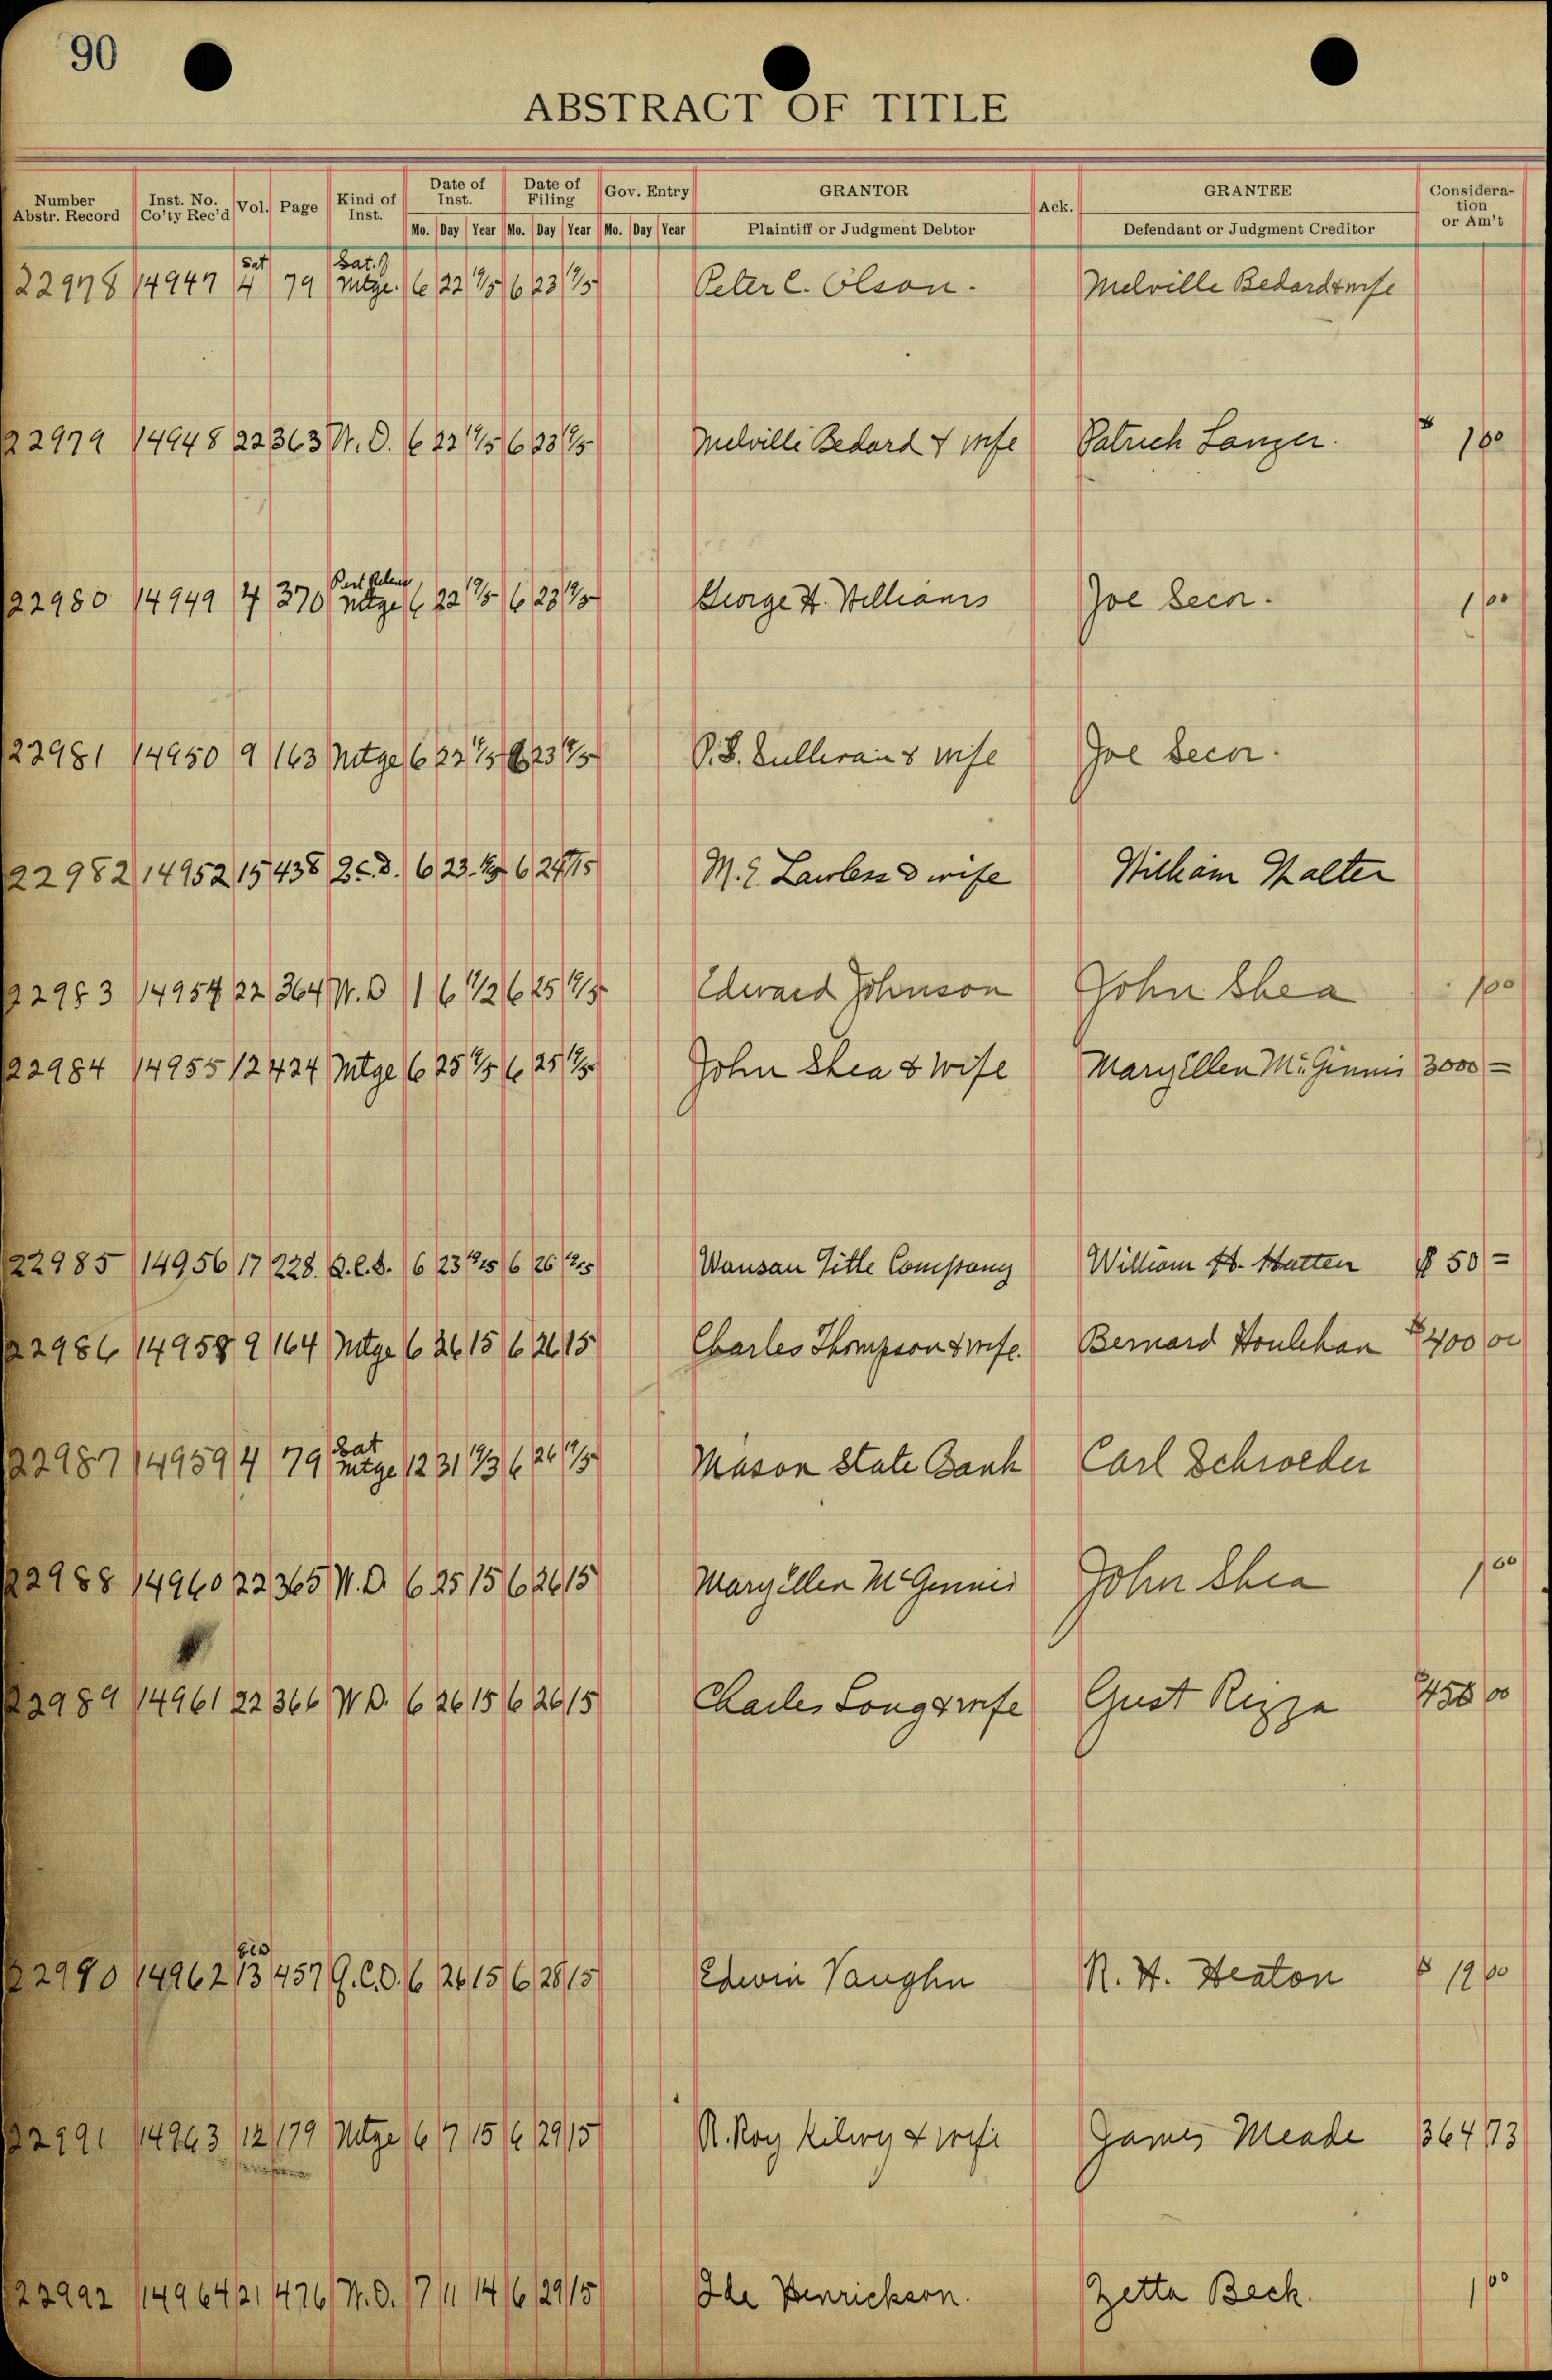 90
ABSTRACT OF TITLE
Number Abstr. Record Inst. No. Co'ty Rec'd Vol. Page Kind of Inst. Date of Inst. Mo. Day Year Date of Filing Mo. Day Year Gov. Entry Mo. Day Year GRANTOR Plaintiff or Judgment Debtor Ack. GRANTEE Defendant or Judgment Creditor Considera-tion or Am't
22978 14947 Sat 4 79 Sat. of Mtge. 6 22 1915 6 23 1915 Peter C. Olson. Melville Bedard & wife
22979 14948 22 363 W.D. 6 22 1915 6 23 1915 Melville Bedard & wife Patrick Lanzer. $ 1 00
22980 14949 4 370 Part Release Mtge 6 22 1915 6 23 1915 George H. Williams Joe Secor. 1 00
22981 14950 9 163 Mtge 6 22 1915 6 23 1915 P.S. Sullivan & wife Joe Secor.
22982 14952 15 438 6 23 1915 6 24 1915 M. E. Lawless & wife William Walter
22983 14954 22 364 W.D 1 6 1912 6 25 1915 Edward Johnson John Shea 1 00
22984 14955 12 424 Mtge 6 25 1915 6 25 1915 John Shea & wife Mary Ellen McGinnis 3000 =
22985 14956 17 228. Q.C.D. 6 23 1915 6 26 1915 Wausau Title Company William H. Hatten $ 50 =
22986 14958 9 164 Mtge 6 26 15 6 26 15 Charles Thompson & wife. Bernard Houlehan $400 00
22987 14959 4 79 Sat Mtge 12 31 1913 6 26 1915 Mason State Bank Carl Schroeder
22988 14960 22 365 W.D. 6 25 15 6 26 15 Mary Ellen McGinnis John Shea 1 00
22989 14961 22 366 W D. 6 26 15 6 26 15 Charles Long & wife Gust Rizza $450 00
22990 14962 13 457 Q.C.D. 6 26 15 6 28 15 Edwin Vaughn R. H. Heaton $ 19 00
22991 14963 12 179 Mtge 6 7 15 6 29 15 R. Roy & wife James Meade 364 73
22992 14964 21 476 W.D. 7 11 14 6 29 15 Ida Henrickson. Zetta Beck. 1 00